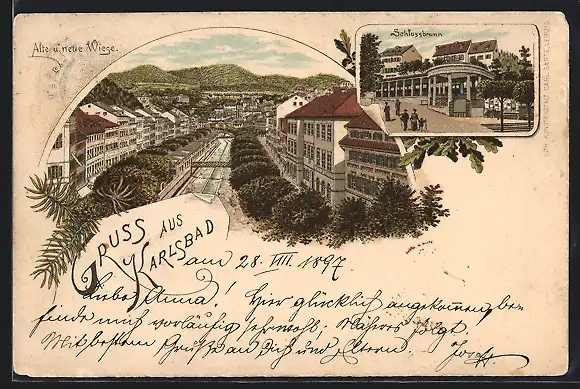 Alte u. neue Wiese.
Schlossbrunn
GRUSS AUS
KARLSBAD
am 28. VIII. 1897
Liebe Anna! Hier glücklich angekommen, be-
finde mich vorläufig sehr wohl; Näheres folgt.
Mit besten Grüße an Dich und Eltern. Josef